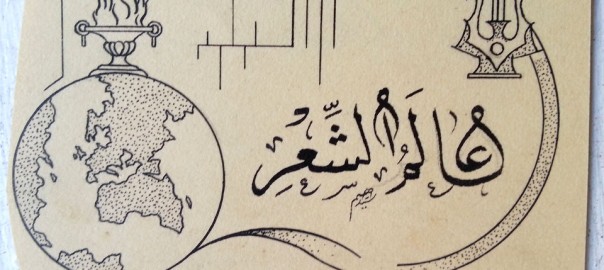 عالَمُ الشِّعرِ